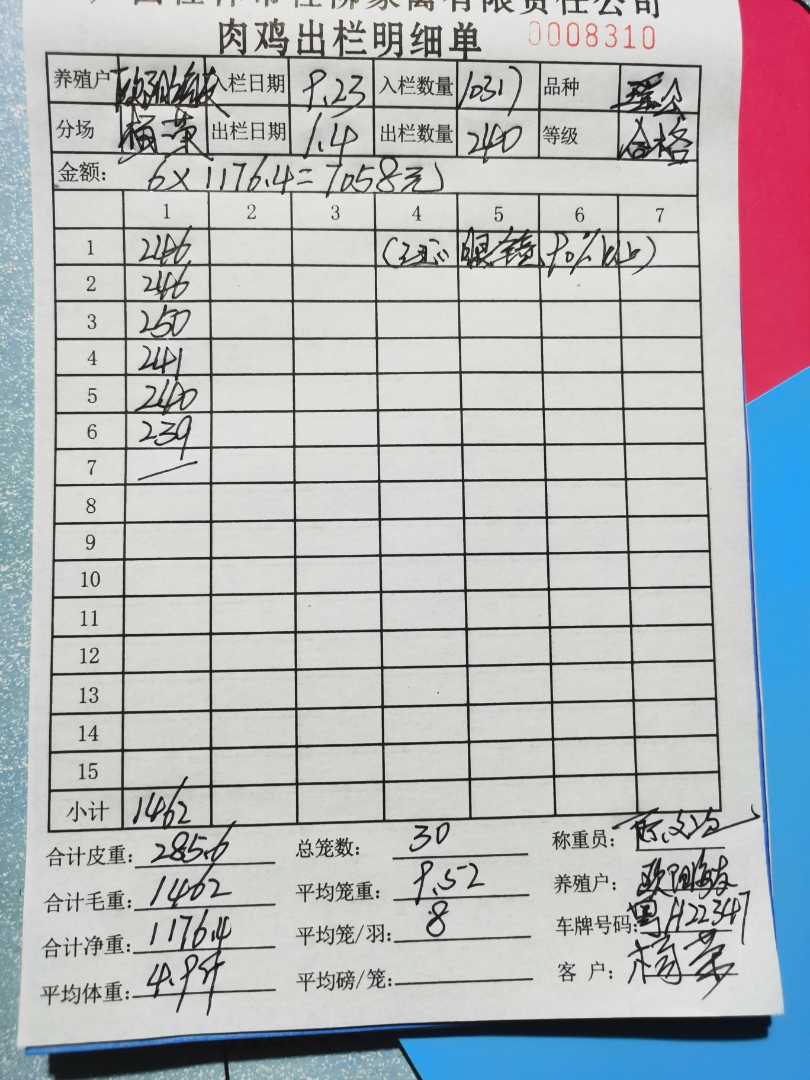 广西桂林市桂柳家禽有限责任公司
肉鸡出栏明细单 0008310
养殖户 欧阳海波 入栏日期 9.23 入栏数量 10317 品种
分场 杨荣 出栏日期 1.4 出栏数量 240 等级 合格
金额: 6×1176.4=7058元
1 2 3 4 5 6 7
1 246 90%以上)
2 246
3 250
4 241
5 240
6 239
7 —
8
9
10
11
12
13
14
15
小计 1462
合计皮重: 285.6 总笼数: 30 称重员:
合计毛重: 1462 平均笼重: 9.52 养殖户:
合计净重: 1176.4 平均笼/羽: 8 车牌号码: H22347
平均体重: 4.9斤 平均磅/笼: 客户: 杨荣